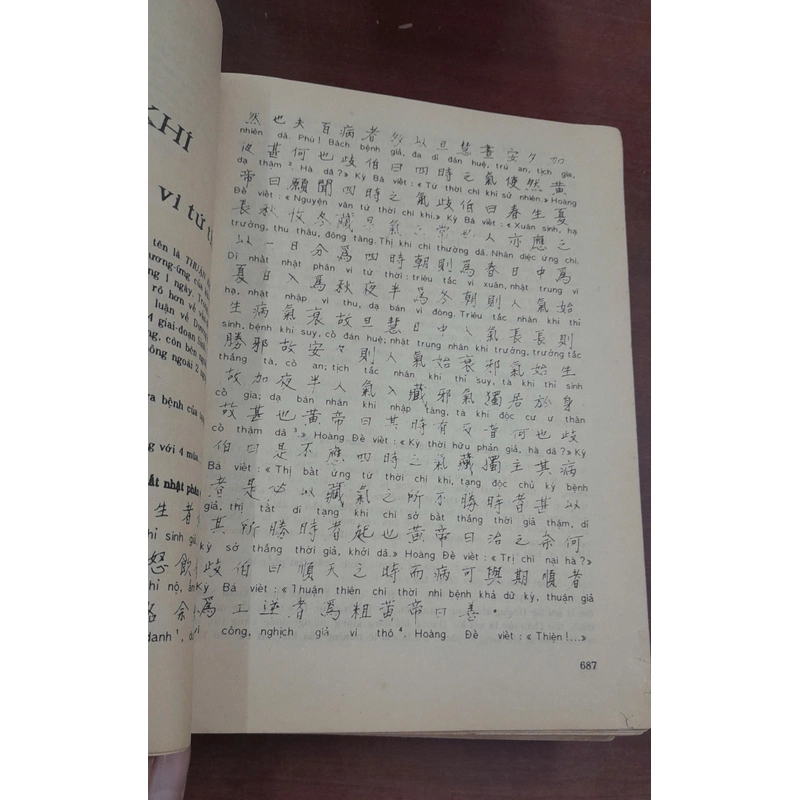 KHÍ
vi tứ t
tên là THUẬN
ương-ứng của
ng 1 ngày. Tro
rõ hơn về
luận về Dươ
4 giai-đoạn
ng, còn bên
ông ngoài 2
ra bệnh của
ng với 4 mùa,
ất nhật phân
生者
hỉ sinh giả,
怒飲
hỉ nộ, ẩm
名余
danh¹,
然也夫百病者多以旦慧晝安夕加
nhiên dã. Phù! Bách bệnh giả, đa dĩ đán huệ, trú an, tịch gia,
夜甚何也歧伯曰四時之氣使然黃
dạ thậm². Hà dã?» Kỳ Bá viết: «Tứ thời chi khí sử nhiên.» Hoàng
帝曰願聞四時之氣歧伯曰春生夏
Đế viết: «Nguyện văn tứ thời chi khí.» Kỳ Bá viết: «Xuân sinh, hạ
長秋收冬藏是氣之常也人亦應之
trưởng, thu thâu, đông tàng. Thị khí chi thường dã. Nhân diệc ứng chi.
以一日分為四時朝則為春日中為
Dĩ nhất nhật phân vi tứ thời: triêu tắc vi xuân, nhật trung vi
夏日入為秋夜半為冬朝則人氣始
hạ, nhật nhập vi thu, dạ bán vi đông. Triêu tắc nhân khí thỉ
生病氣衰故旦慧日中人氣長長則
sinh, bệnh khí suy, cố đán huệ; nhật trung nhân khí trưởng, trưởng tắc
勝邪故安夕則人氣始衰邪氣始生
thắng tà, cố an; tịch tắc nhân khí thỉ suy, tà khí thỉ sinh
故加夜半人氣入藏邪氣獨居於身
cố gia; dạ bán nhân khí nhập tàng, tà khí độc cư ư thân
故甚也黃帝曰其時有反者何也歧
cố thậm dã³.» Hoàng Đế viết: «Kỳ thời hữu phản giả, hà dã?» Kỳ
伯曰是不應四時之氣藏獨主其病
Bá viết: «Thị bất ứng tứ thời chi khí, tạng độc chủ kỳ bệnh
者是必以藏氣之所不勝時者甚以
giả, thị tất dĩ tạng khí chi sở bất thắng thời giả thậm, dĩ
其所勝時者起也黃帝曰治之奈何
kỳ sở thắng thời giả, khởi dã.» Hoàng Đế viết: «Trị chi nại hà?»
歧伯曰順天之時而病可與期順者
Kỳ Bá viết: «Thuận thiên chi thời nhi bệnh khả dữ kỳ, thuận giả
為工逆者為粗黃帝曰善。
vi công, nghịch giả vi thô⁴. Hoàng Đế viết: «Thiện!...»
687